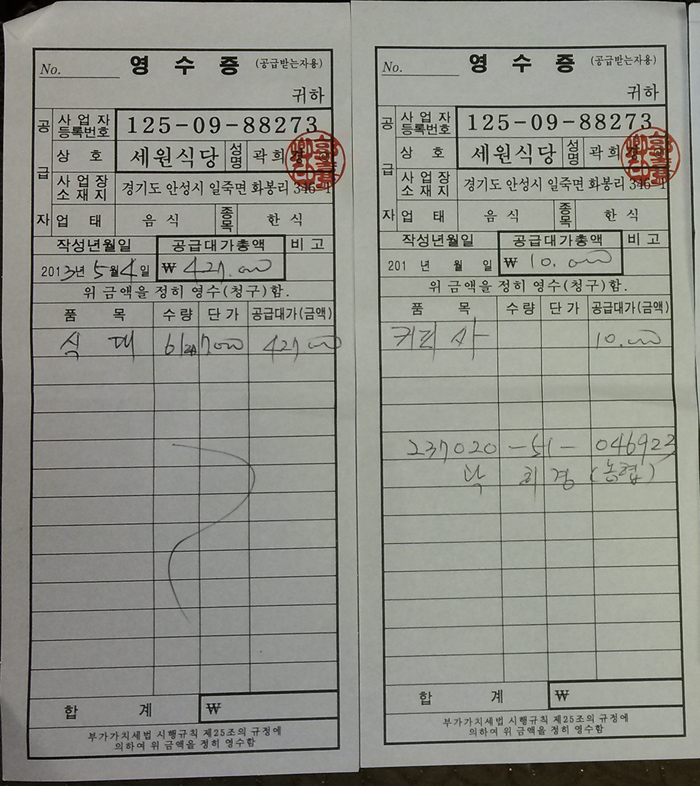 No. 영 수 증 (공급받는자용)
귀하
공급자
사업자등록번호 125-09-88273
상 호 세원식당 성명 곽희
사업장소재지 경기도 안성시 일죽면 화봉리 346-1
업 태 음 식 종목 한 식
작성년월일 공급대가총액 비 고
2013년 5월 4일 ₩ 427.000
위 금액을 정히 영수(청구)함.
품 목 수 량 단 가 공급대가(금액)
식 대 61 7000 427000
합 계 ₩
부가가치세법 시행규칙 제25조의 규정에
의하여 위 금액을 정히 영수함
No. 영 수 증 (공급받는자용)
귀하
공급자
사업자등록번호 125-09-88273
상 호 세원식당 성명 곽희
사업장소재지 경기도 안성시 일죽면 화봉리 346-1
업 태 음 식 종목 한 식
작성년월일 공급대가총액 비 고
201 년 월 일 ₩ 10.000
위 금액을 정히 영수(청구)함.
품 목 수 량 단 가 공급대가(금액)
커피 사 10.000
237020-51-046923
희경 (농협)
합 계 ₩
부가가치세법 시행규칙 제25조의 규정에
의하여 위 금액을 정히 영수함